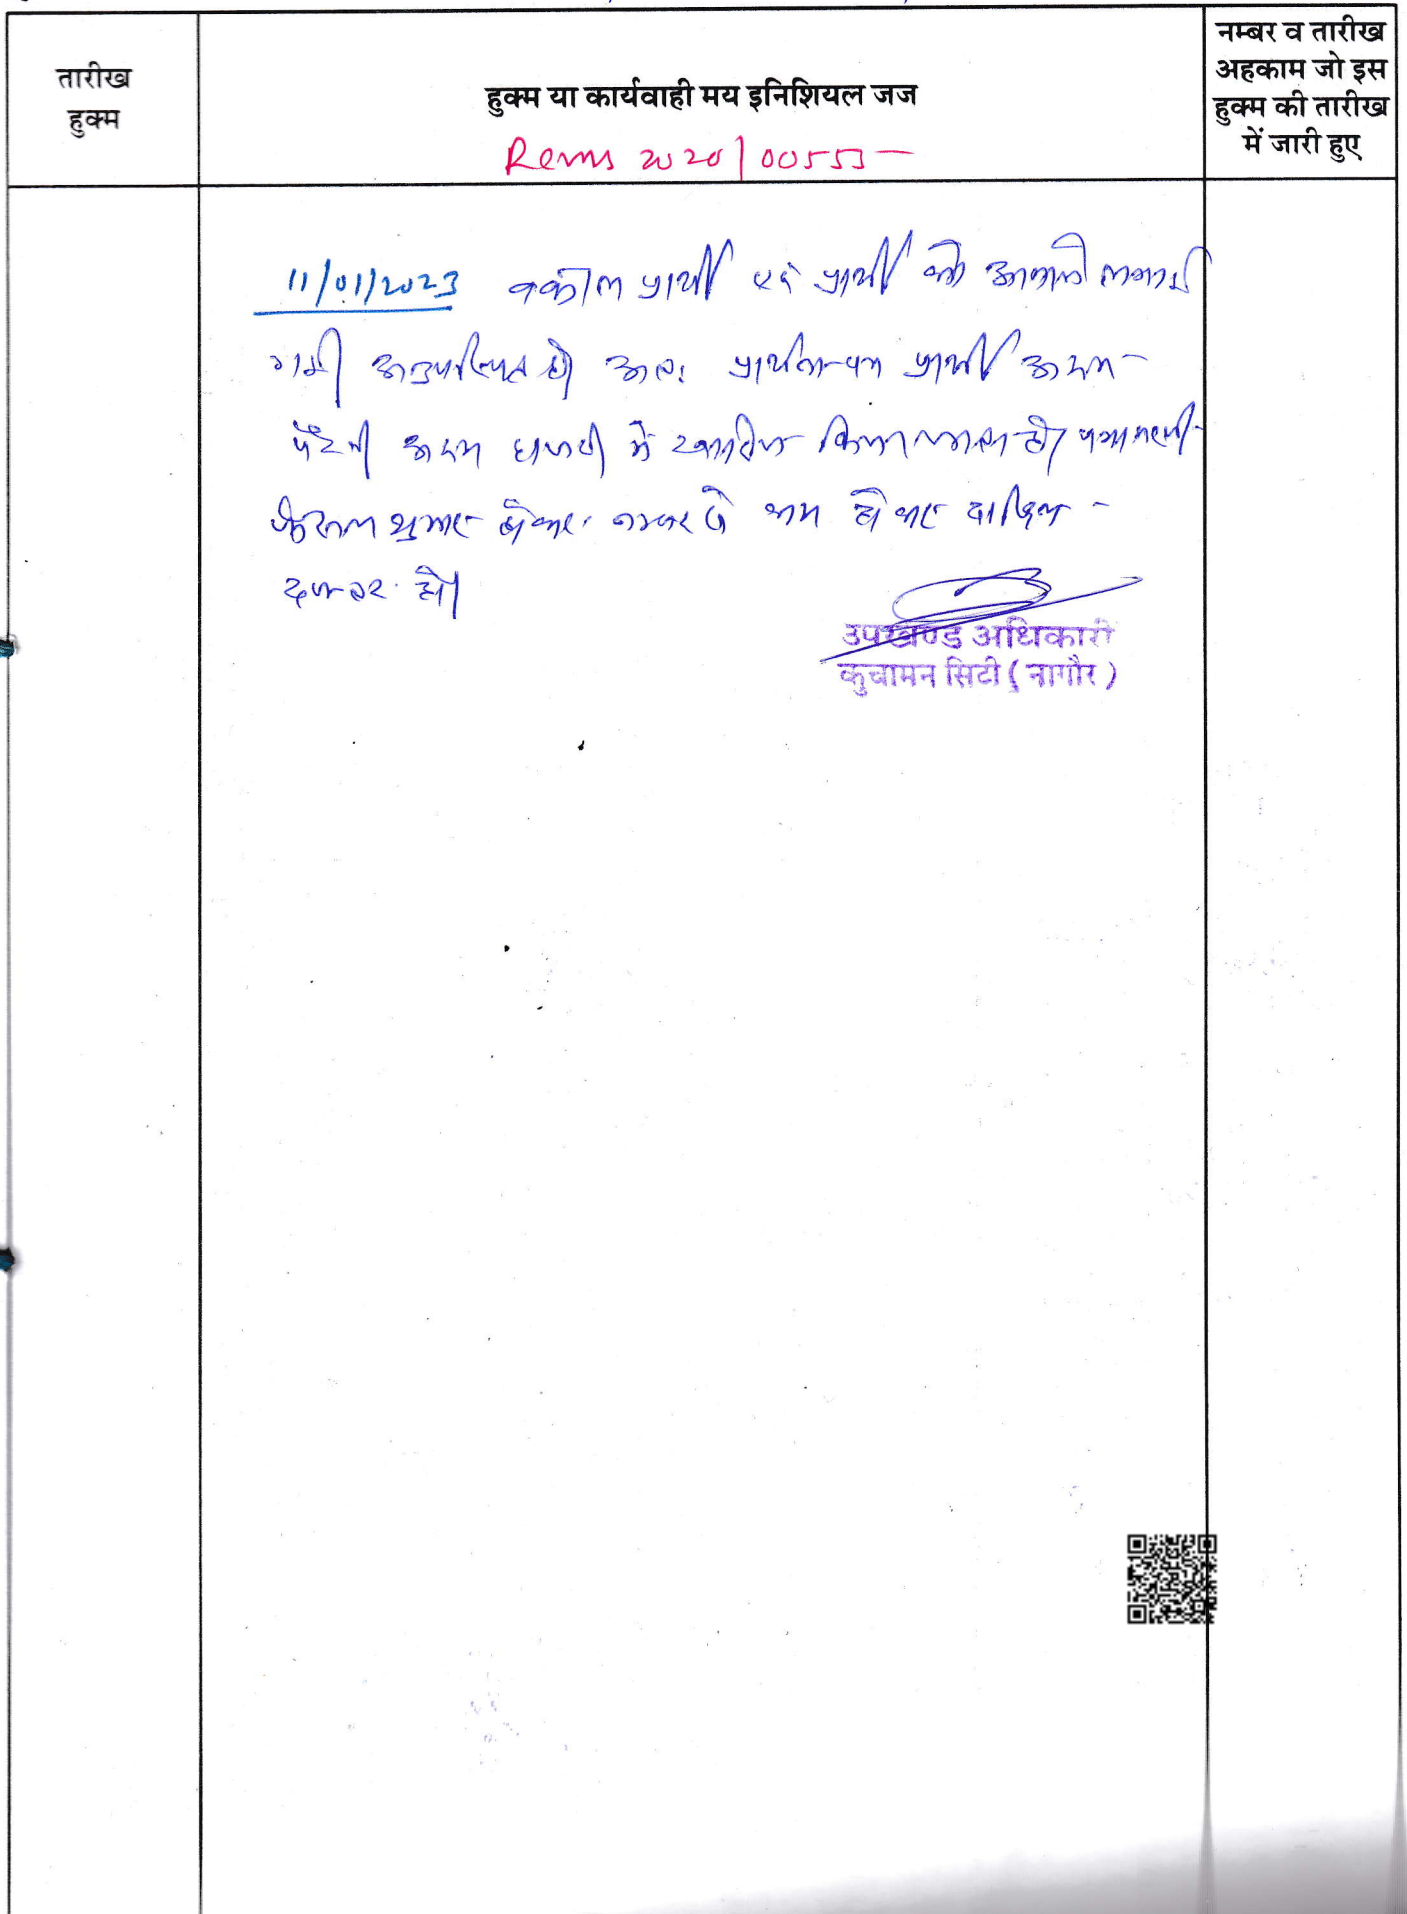 तारीख
हुक्म
हुक्म या कार्यवाही मय इनिशियल जज
नम्बर व तारीख
अहकाम जो इस
हुक्म की तारीख
में जारी हुए
Rcms 2020/00553
11/01/2023 वकील प्रार्थी एवं प्रार्थी को आवाजे लगाई
गयी अनुपस्थित है। अतः प्रार्थना-पत्र प्रार्थी अदम
पैरवी अदम हाजरी में खारिज किया जाता है। पत्रावली
फैसल शुमार होकर नम्बर से कम होकर दाखिल
दफ्तर हो।
उपखण्ड अधिकारी
कुचामन सिटी (नागौर)